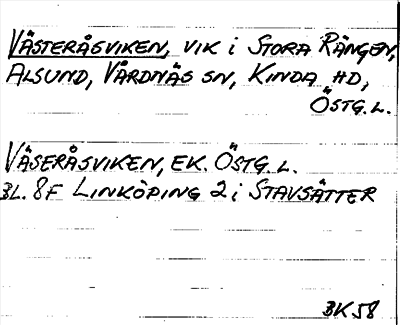 VÄSTERÅSVIKEN, VIK i STORA RÄNGEN,
ALSUND, VÅRDNÄS SN, KINDA HD,
ÖSTG. L.
VÄSERÅSVIKEN, EK. ÖSTG. L.
BL. 8F LINKÖPING 2 i STAVSÄTTER
BK 58